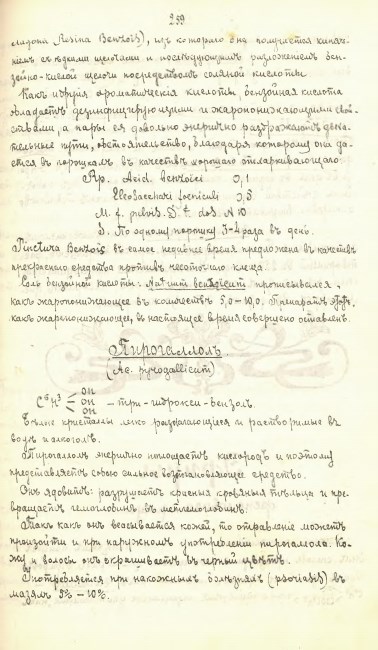 259
(Resina Benzoës), изъ котораго она получается кипяче-
ніемъ съ ѣдкими щелочами и послѣдующимъ разложеніемъ бен-
зойно-кислой щелочи посредствомъ соляной кислоты.
Какъ и другія ароматическія кислоты, бензойная кислота
обладаетъ дезинфицирующими и жаропонижающими свой-
ствами, а пары ея довольно энергично раздражаютъ дыха-
тельные пути, обстоятельство, благодаря которому она да-
ется въ порошкахъ въ качествѣ хорошаго отхаркивающаго.
Rp. Acid. benzoici 0,1
Eleosacchari foeniculi 0,5
M. f. pulvis. D. t. dos. N 10
S. По одному порошку 3-4 раза въ день.
Tinctura Benzoës въ самое недавнее время предложена въ качествѣ
прекраснаго средства противъ чесоточнаго клеща.
Соль бензойной кислоты: Natrum benzoicum прописывался,
какъ жаропонижающее въ количествѣ 5,0-10,0. Препаратъ этотъ,
какъ жаропонижающее, въ настоящее время совершено оставленъ.
Пирогаллолъ.
(Ac. pyrogallicum)
C⁶H³ OH OH OH - три-гидрокси-бензолъ.
Бѣлые кристаллы легко разлагающіеся и растворимые въ
водѣ и алкоголѣ.
Пирогаллолъ энергично поглощаетъ кислородъ и поэтому
представляетъ собою сильное возстановляющее средство.
Онъ ядовитъ: разрушаетъ красныя кровяныя тѣльца и пре-
вращаетъ гемоглобинъ въ метгемоглобинъ.
Такъ какъ онъ всасывается кожей, то отравленіе можетъ
произойти и при наружномъ употребленіи пирогаллола. Ко-
жу и волосы онъ окрашиваетъ въ черный цвѣтъ.
Употребляется при накожныхъ болѣзняхъ (psoriasis) въ
мазяхъ 5% - 10%.